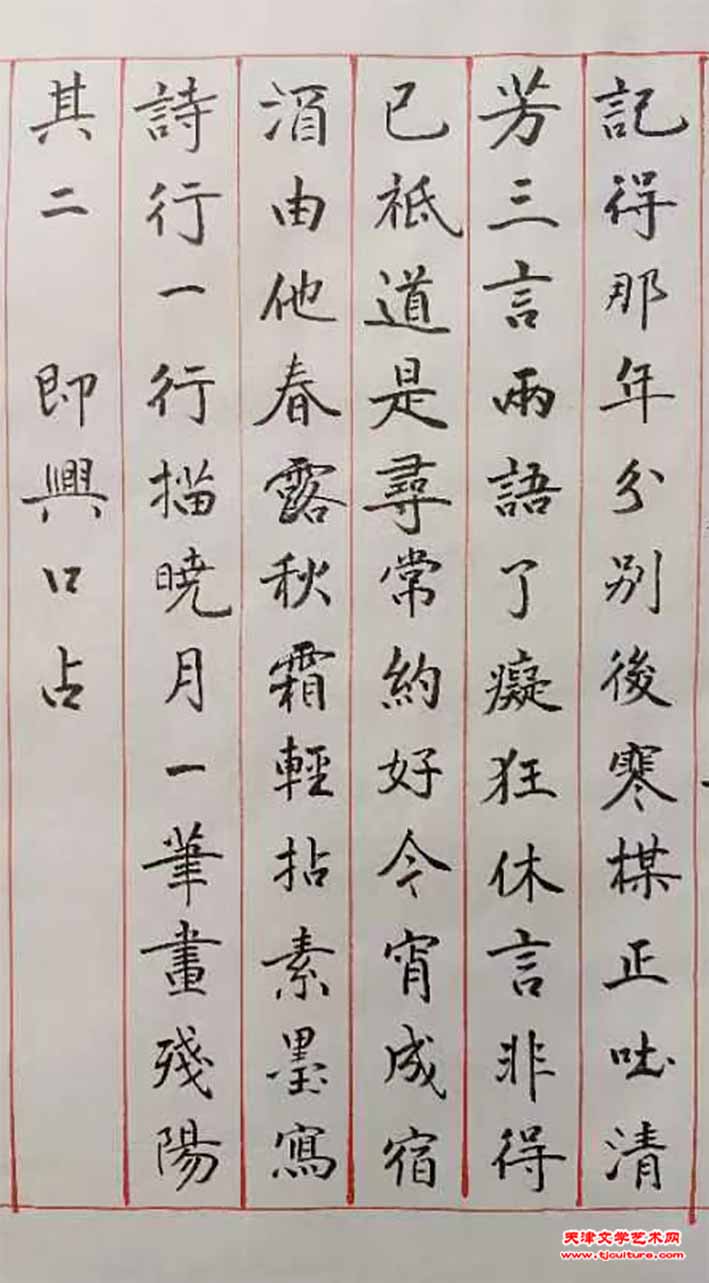 記得那年分別後寒楳正吐清
芳三言兩語了癡狂休言非得
已祗道是尋常約好今宵成宿
酒由他春露秋霜輕拈素墨寫
詩行一行描曉月一筆畫殘陽
其二 即興口占
天津文学艺术网
www.tjculture.com